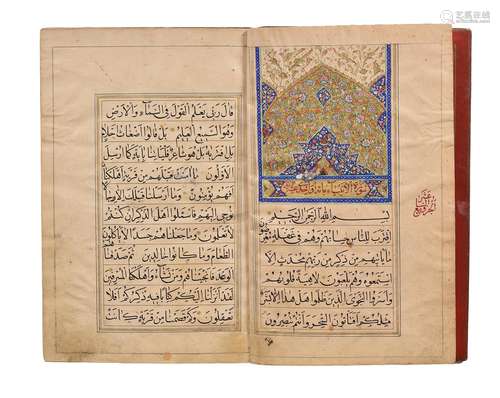 بسم الله الرحمن الرحيم
اقترب للناس حسابهم وهم في غفلة معرضون
ما يأتيهم من ذكر من ربهم محدث الا
استمعوه وهم يلعبون لاهية قلوبهم
واسروا النجوى الذين ظلموا هل هذا الا بشر
مثلكم افتأتون السحر وانتم تبصرون
قال ربي يعلم القول في السماء والارض
وهو السميع العليم بل قالوا اضغاث احلام
بل افتريه بل هو شاعر فليأتنا بآية كما ارسل
الاولون ما آمنت قبلهم من قرية اهلكناها
افهم يؤمنون وما ارسلنا قبلك الا رجالا
نوحي اليهم فاسئلوا اهل الذكر ان كنتم
لا تعلمون وما جعلناهم جسدا لا يأكلون
الطعام وما كانوا خالدين ثم صدقناهم
الوعد فانجيناهم ومن نشاء واهلكنا المسرفين
لقد انزلنا اليكم كتابا فيه ذكركم افلا
تعقلون وكم قصمنا من قرية كانت